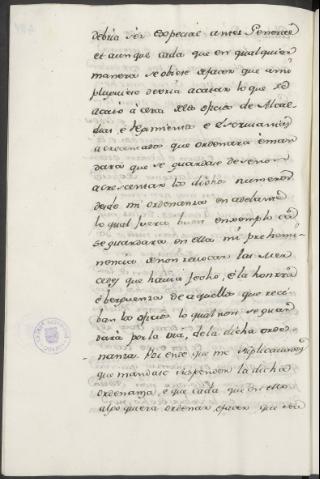 debria ser especial antes General
et aunque cada que en qualquier
manera se obiese de facer que a mi
pluguiese devria acatar lo que se
acató á cerca de los oficios de Alcal-
dias é Regimientos e Escrivanias
acrecentados que ordenara é man
dara que se guardase de venir á
acrescentar los dichos numeros
desde mi ordenanza en adelante
lo qual fuera buen enxemplo ca
se guardara en ella mi prehemi-
nencia de non revocar las Mer-
cedes que havia fecho, é la honrra
é berguenza de aquellos que reci-
ban los oficios lo qual non se guar
dará por la via de la dicha orde-
nanza. Por ende que me suplicavades
que mandase suspender la dicha
ordenanza, e que cada que en esto
algo quiera ordenar é facer que sea